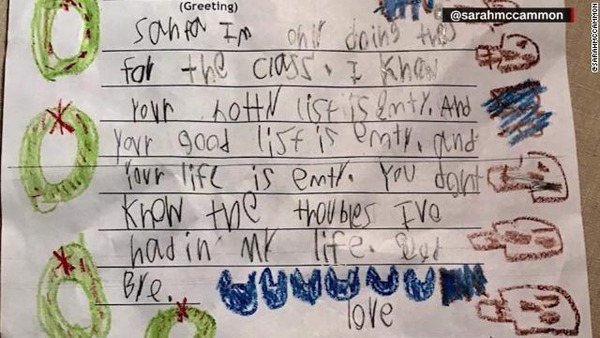 (Greeting)
@sarahmccammon
Santa Im only doing this
for the class I know
Your notty list is emty. And
Your good list is emty. And
Your life is emty. You dont
know the troubles Ive
had in my life. Good
Bye.
love
@SARAHMCCAMMON